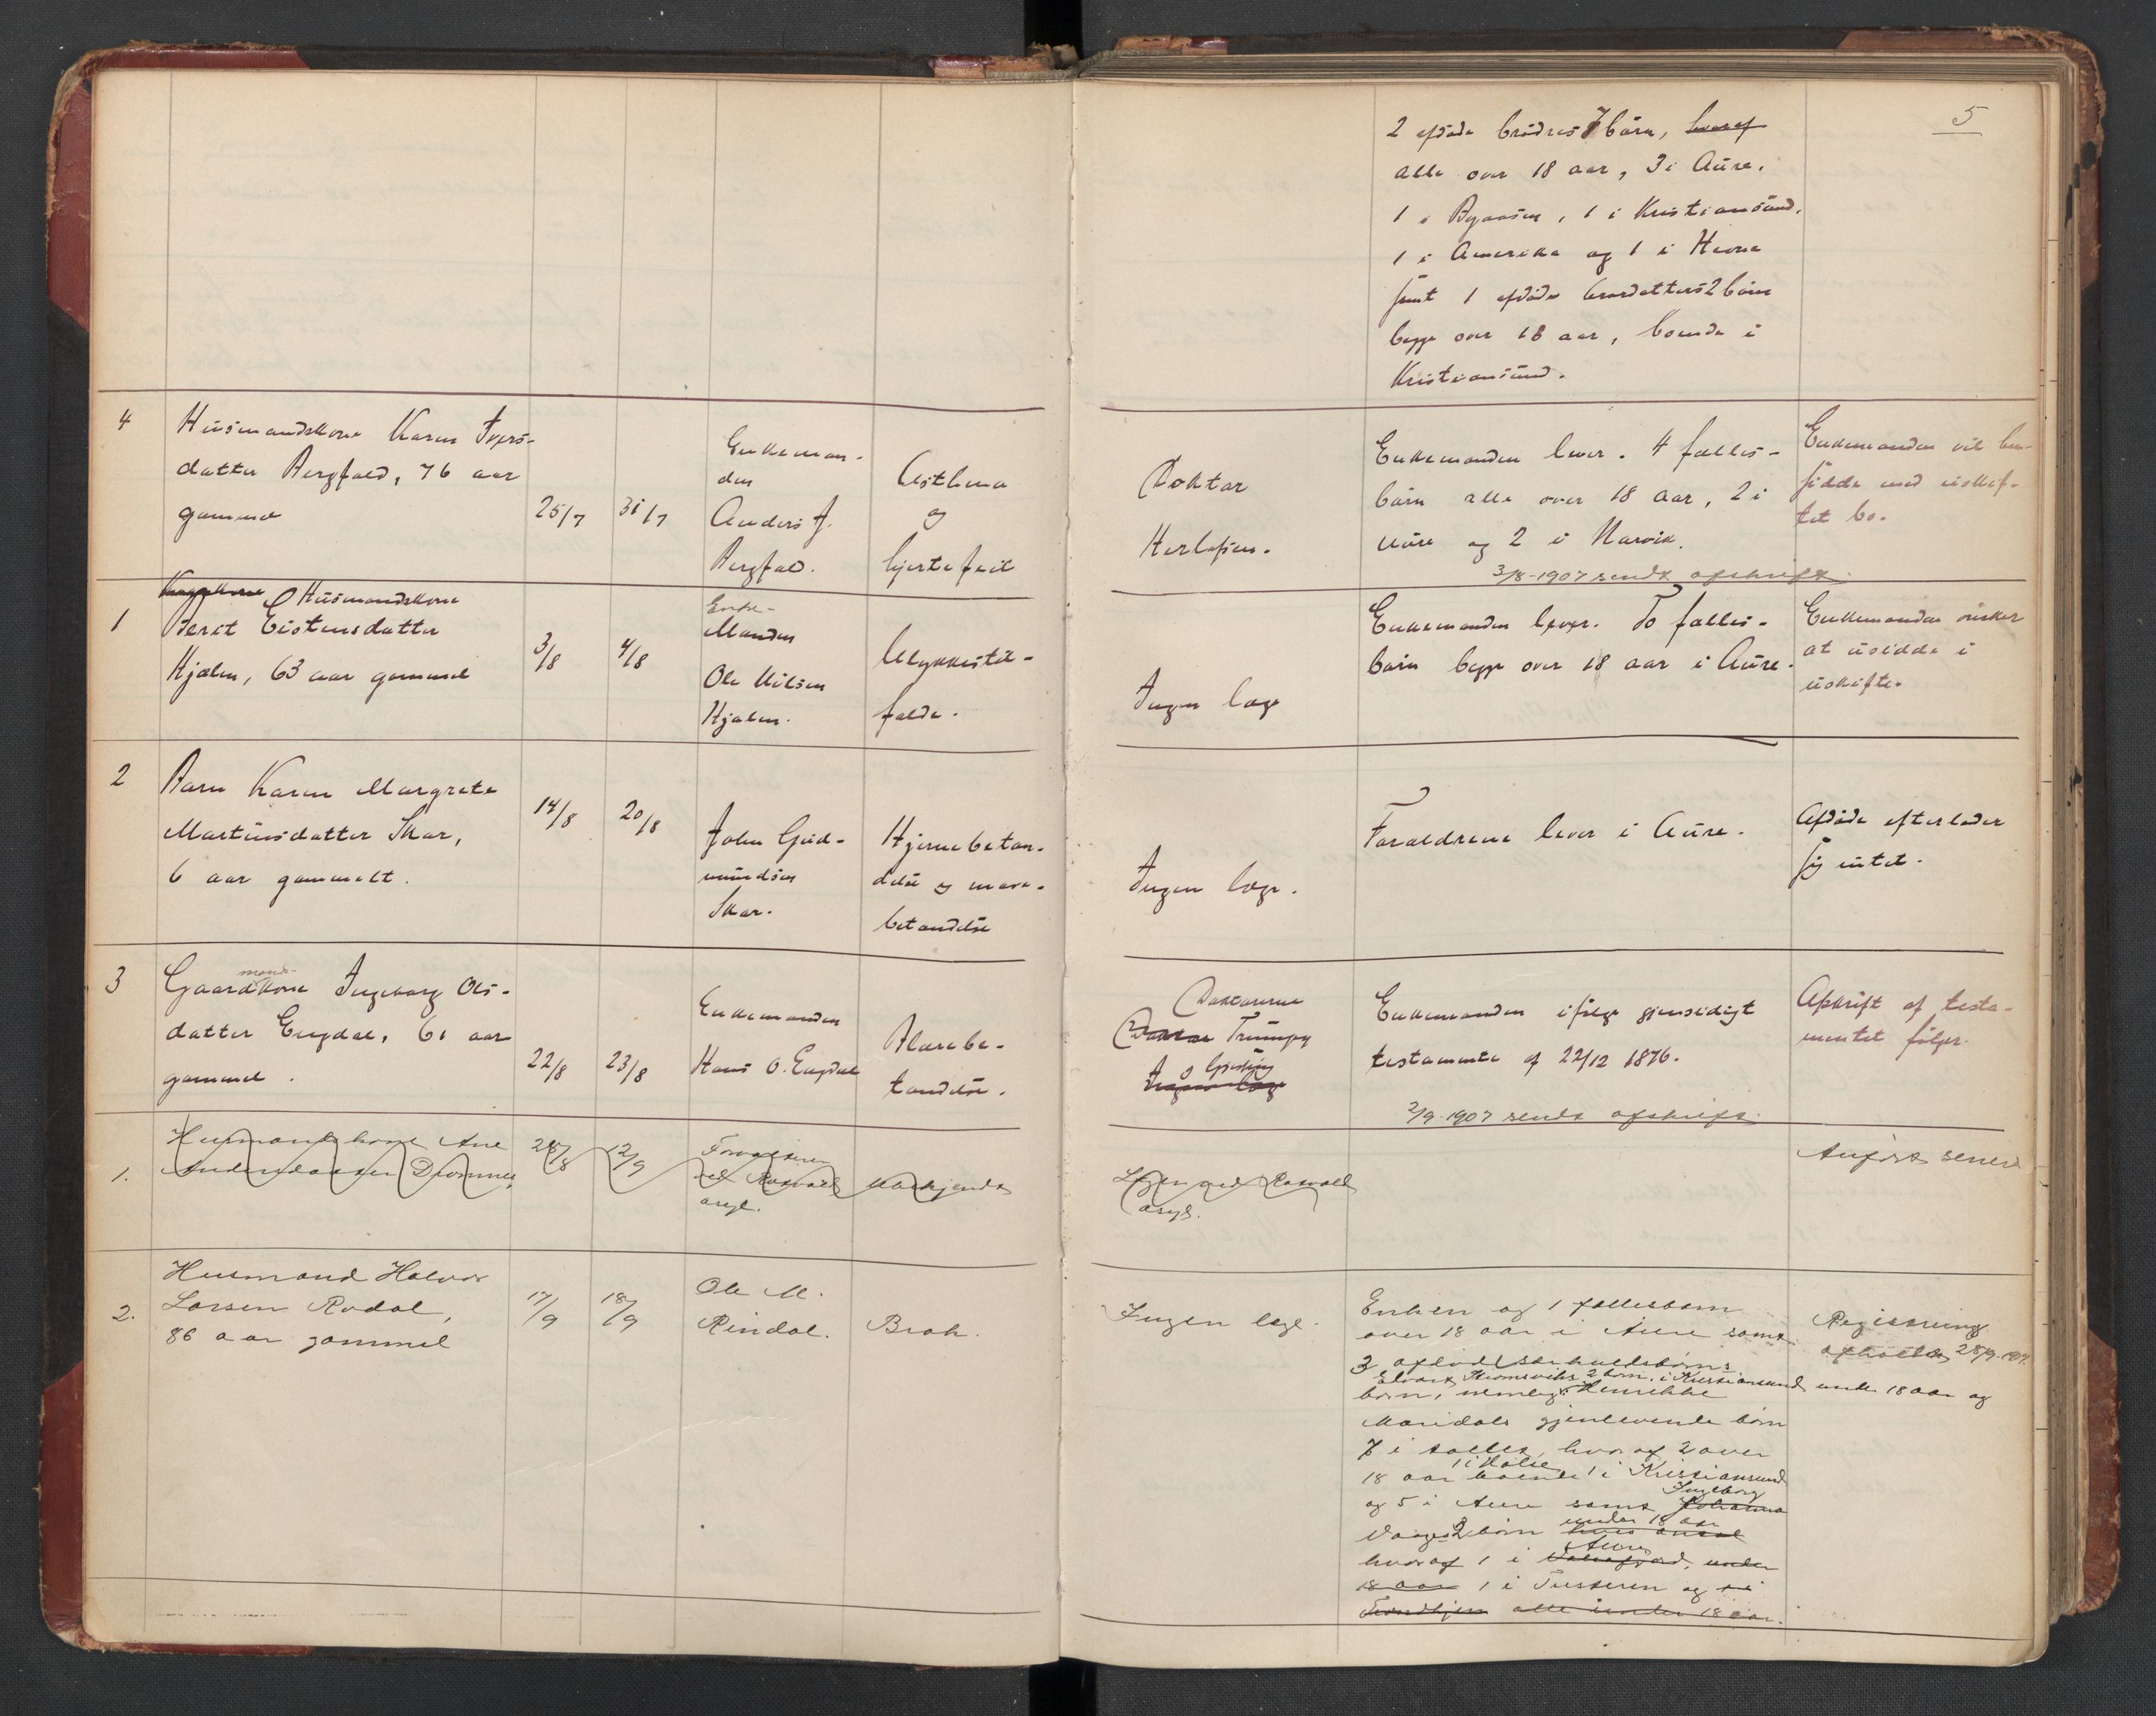 5
2 afdøde brødres 7 børn, hvoraf
alle over 18 aar, 3 i Aure,
1 i Bynæsen, 1 i Kristiansund,
1 i Amerika og 1 i Hevne
samt 1 afdøde brordatters 2 børn
begge over 18 aar, boende i
Kristiansund.
4
Husmandskone Karen Ivers-
datter Bergfald, 76 aar
gammel
25/7
31/7
Enkeman-
den
Anders J.
Bergfald.
Asthma
og
hjertefeil
Doktor
Enkemanden lever. 4 fælles-
børn alle over 18 aar, 2 i
Aure og 2 i Narvik.
3/8-1907 sendt afskrift.
Enkemanden vil hen-
sidde med uskif-
tet bo.
1
Husmandskone
Beret Eistensdatter
Hjælm, 63 aar gammel
3/8
4/8
Enke-
Manden
Ole Nilsen
Hjælm.
Ulykkestil-
fælde.
Ingen læge
Enkemanden lever. To fælles-
børn begge over 18 aar i Aure.
Enkemanden ønsker
at usidde i
uskifte.
2
Barn Karen Margrete
Martinusdatter Skar,
6 aar gammelt.
14/8
20/8
John Gud-
mundsen
Skar.
Hjernebetæn-
delse og mave-
betændelse
Ingen læge.
Forældrene lever i Aure.
Afdøde efterlader
sig intet.
3
mands-
Gaardkone Ingeborg Ols-
datter Engdal, 61 aar
gammel.
22/8
23/8
Enkemanden
Hans O. Engdal
Blærebe-
tændelse.
Doktorerne
Doktor Trumpy
og
Ingen læge
Enkemanden ifølge gjensidigt
testamente af 22/12 1876.
2/9-1907 sendt afskrift.
Afskrift af testa-
mentet følger.
1.
Husmandskone Ane
Andersdatter Dromnes
28/8
12/9
Forvalteren
ved Rotvold
asyl.
Ubekjendt
Lægen ved Rotvold
asyl.
Anført senere
2.
Husmand Halvor
Larsen Rodal,
86 aar gammel
17/9
18/9
Ole M.
Rindal.
Brok.
Ingen læge.
Enken og 1 fællesbarn
over 18 aar i Aure samt
3 afdøde særkuldsbørns
2 børn i Kristiansund under 18 aar og
børn, nemlig: Henrikke
Maridals gjenlevende børn
7 i tallet, hvoraf 2 over
1 i Halse
18 aar boende 1 i Kristiansund
Ingeborg
og 5 i Aure samt Johanna
under 18 aar
Vaages 2 børn hvis antal
Aure
hvoraf 1 i Valsøfjord, under
18 aar 1 i Tusteren og 1 i
Trondhjem alle under 18 aar.
Registrering
afholdt 28/9-1907.